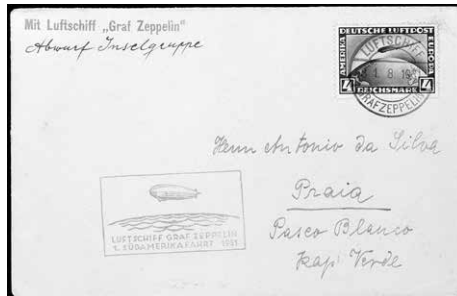 Mit Luftschiff „Graf Zeppelin"
Abwurf Inselgruppe
DEUTSCHE LUFTPOST
AMERIKA
EUROPA
4 REICHSMARK 4
LUFTSCHIFF
GRAF ZEPPELIN
Herrn Antonio da Silva
Praia
Pasco Blanco
Kap Verde
LUFTSCHIFF GRAF ZEPPELIN
1. SÜDAMERIKAFAHRT 1931